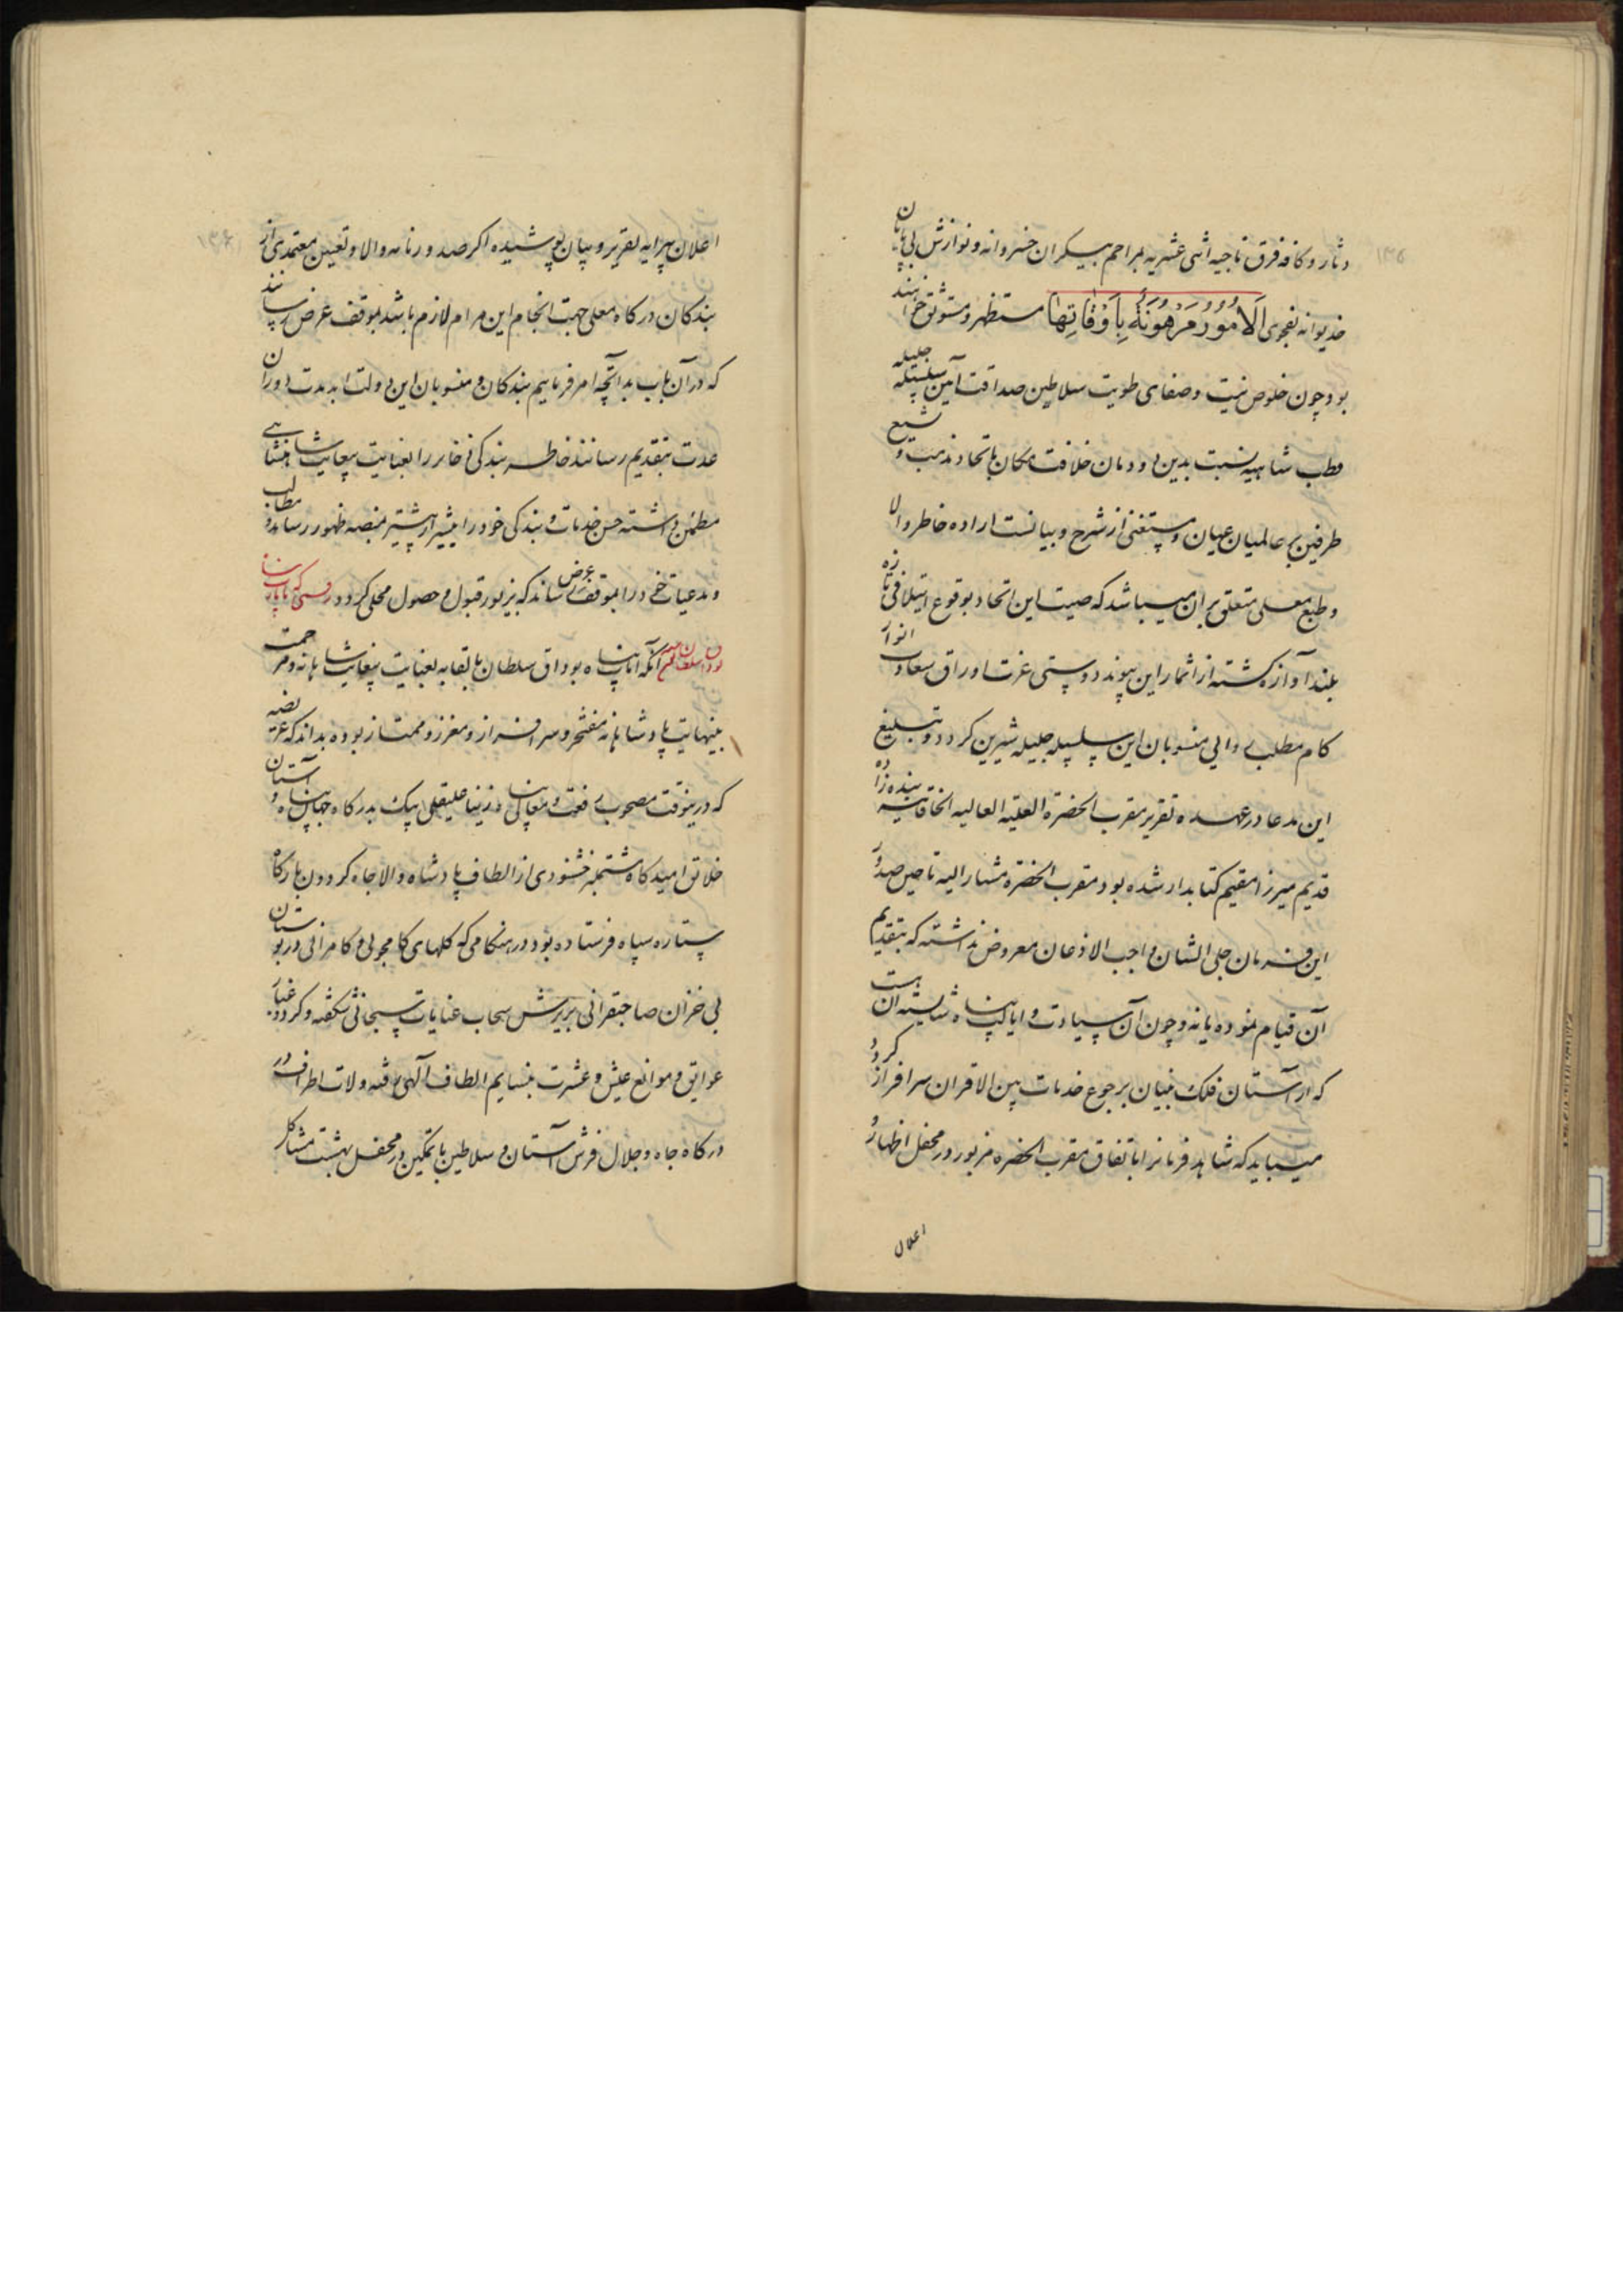 ۱۳۵
دثار و کافه فرق ناجیه اثنی عشریه بمراحم بیکران خسروانه و نوازش بی پایان
خدیوانه بفحوی اَلاُمُورُ مَرْهُونَةٌ بِاَوْقَاتِهَا مستظهر و مستوثق خواهند
بود چون خلوص نیت و صفای طویت سلاطین صداقت آیین سلسله جلیله
قطب شاهیه نسبت بدین دودمان خلافت مکان باتحاد مذهب و تشیع
طرفین بر عالمیان عیان و مستغنی از شرح و بیانست اراده خاطر والا
و طبع معلی متعلق بر آن میباشد که صیت این اتحاد بوقوع ایتلافی تازه
بلند آوازه گشته از اثمار این پیوند دوستی عزت اوراق سعادت انوار
کام مطلب والی منسوبان این سلسله جلیله شیرین گردد و تبلیغ
این مدعا در عهده تقریر مقرب الحضرة العلیة العالیه الخاقانیه بنده زاده
قدیم میرزا مقیم کتابدار شده بود مقرب الحضرة مشار الیه تا حین صدور
این فرمان جلی الشان واجب الاذعان معروض نداشته که بتقدیم
آن قیام نموده یا نه و چون آن سیادت و ایالت پناه شایسته آن هست
که از آستان فلک بنیان برجوع خدمات بین الاقران سرافراز گردد
میباید که شاهد فرمانرا باتفاق مقرب الحضره مزبور در محفل اظهار و
اعلان
۱۳۶
اعلان پیرایه تقریر و بیان پوشیده اگر صدور نامه والا و تعیین معتمدی از
بندگان درگاه معلی جهت انجام این مرام لازم باشد بموقف عرض رسانند
که در آن باب بدانچه امر فرماییم بندگان و منسوبان این دولت ابد مدت دوران
عدت بتقدیم رسانند خاطر بندگی ذخایر را بعنایت بیغایت شاهنشاهی
مطمئن داشته حسن خدمات و بندگی خود را بیشتر از پیشتر بمنصه ظهور رساند و مطالب
و مدعیات خود را بموقف عرض رساند که بزیور قبول و حصول محلی گردد
آنکه ایالت پناه بوداق سلطان بالقابه بعنایت بیغایت شاهانه و مرحمت
بینهایت پادشاهانه مفتخر و سرافراز و معزز و ممتاز بوده بداند که عریضه
که درینوقت مصحوب رفعت و معالی پناه زینا علیقلی بیک بدرگاه جهان پناه و آستان
خلایق امیدگاه مشتمبر خشنودی از الطاف پادشاه والاجاه گردون بارگاه
ستاره سپاه فرستاده بود در هنگامی که گلهای کامجویی و کامرانی در بوستان
بی خزان صاحبقرانی بریزش سحاب عنایات سبحانی شکفته و گرد و غبار
عوایق و موانع عیش و عشرت بنسایم الطاف الهی رفته ولات اطراف در
درگاه جاه و جلال فرش آستان و سلاطین با تمکین در محفل بهشت مشاکل